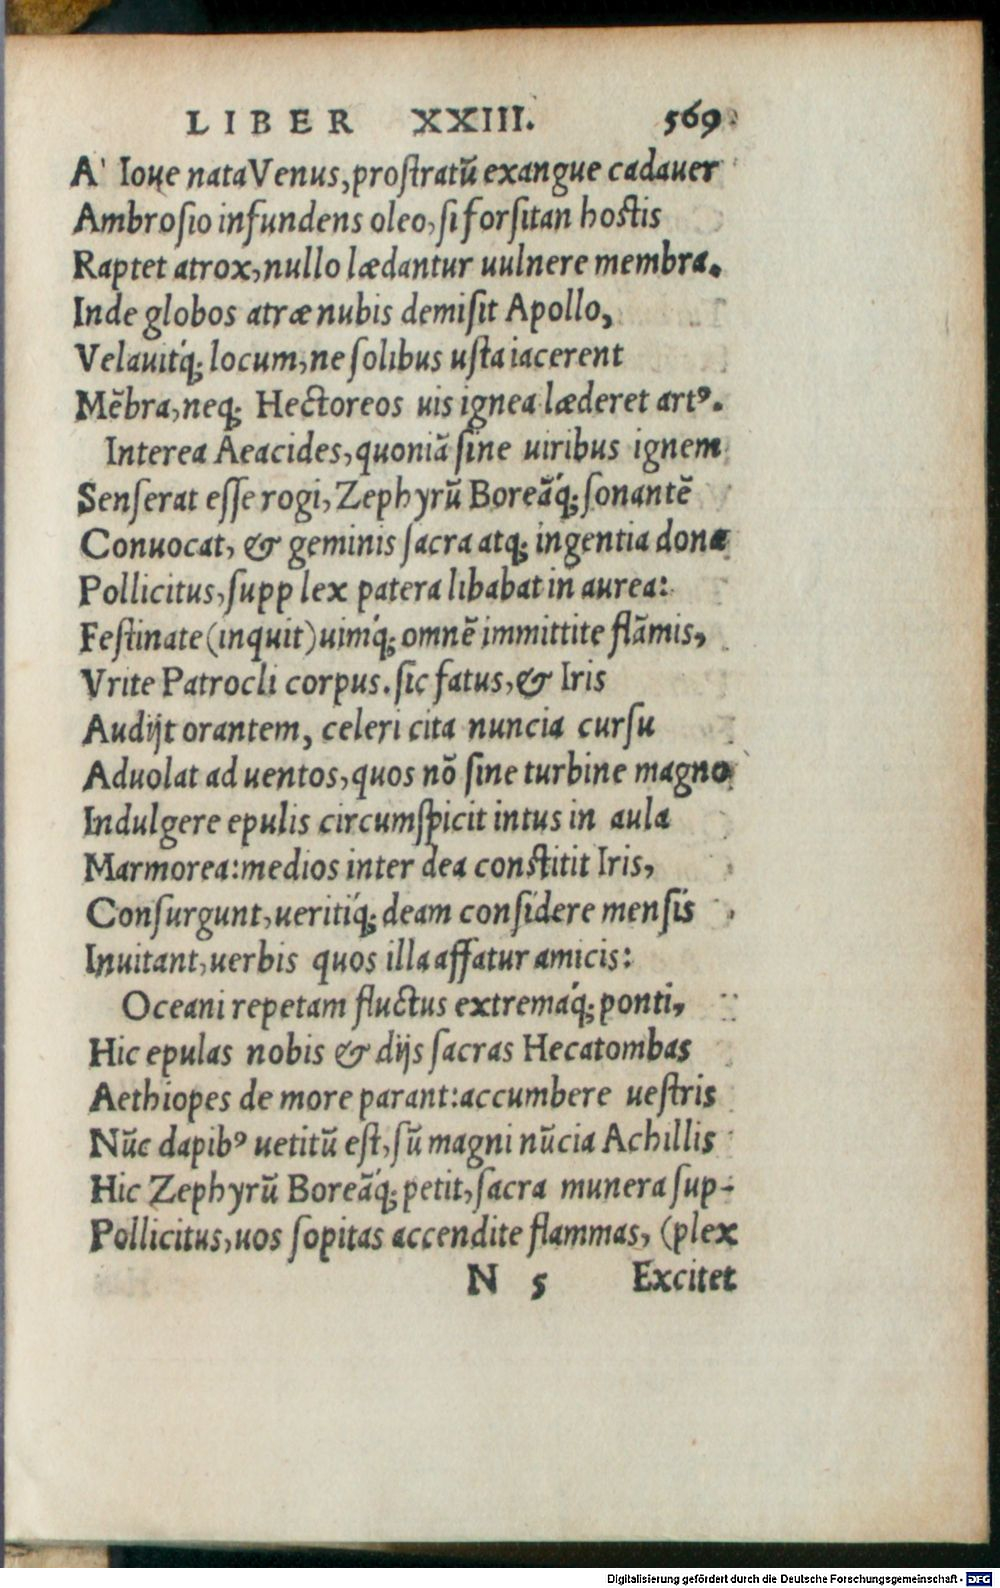 LIBER XXIII. 569
A' Ioue nata Venus, proſtratũ exangue cadauer
Ambroſio infundens oleo, ſi forſitan hoſtis
Raptet atrox, nullo lædantur uulnere membra.
Inde globos atræ nubis demiſit Apollo,
Velauitq́; locum, ne ſolibus uſta iacerent
Mẽbra, neq; Hectoreos uis ignea læderet artꝰ.
Interea Aeacides, quoniã ſine uiribus ignem
Senſerat eſſe rogi, Zephyrũ Boreãq́; ſonantẽ
Conuocat, & geminis ſacra atq; ingentia dona
Pollicitus, ſupplex patera libabat in aurea:
Feſtinate (inquit) uimq́; omnẽ immittite flãmis,
Vrite Patrocli corpus. ſic fatus, & Iris
Audijt orantem, celeri cita nuncia curſu
Aduolat ad uentos, quos nõ ſine turbine magno
Indulgere epulis circumſpicit intus in aula
Marmorea: medios inter dea conſtitit Iris,
Conſurgunt, ueritiq́; deam conſidere menſis
Inuitant, uerbis quos illa affatur amicis:
Oceani repetam fluctus extremaq́; ponti,
Hic epulas nobis & dijs ſacras Hecatombas
Aethiopes de more parant: accumbere ueſtris
Nũc dapibꝰ uetitũ eſt, ſũ magni nũcia Achillis
Hic Zephyrũ Boreãq́; petit, ſacra munera ſup-
Pollicitus, uos ſopitas accendite flammas, (plex
N 5 Excitet
Digitalisierung gefördert durch die Deutsche Forschungsgemeinschaft - DFG